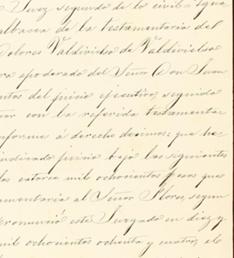 Juez segundo de lo civil.
albacea de la testamentaria del
Dolores Valdivielso de Valdivielso
apoderado del Señor Don Juan
del juicio ejecutivo, seguido
con la referida testamentaria
conforme á derecho decimos: que he
juicio bajo las siguientes
catorce mil ochocientos pesos que
testamentaria al Señor Flores, segun
pronunció este Juzgado en diez y
mil ochocientos ochenta y cuatro, el